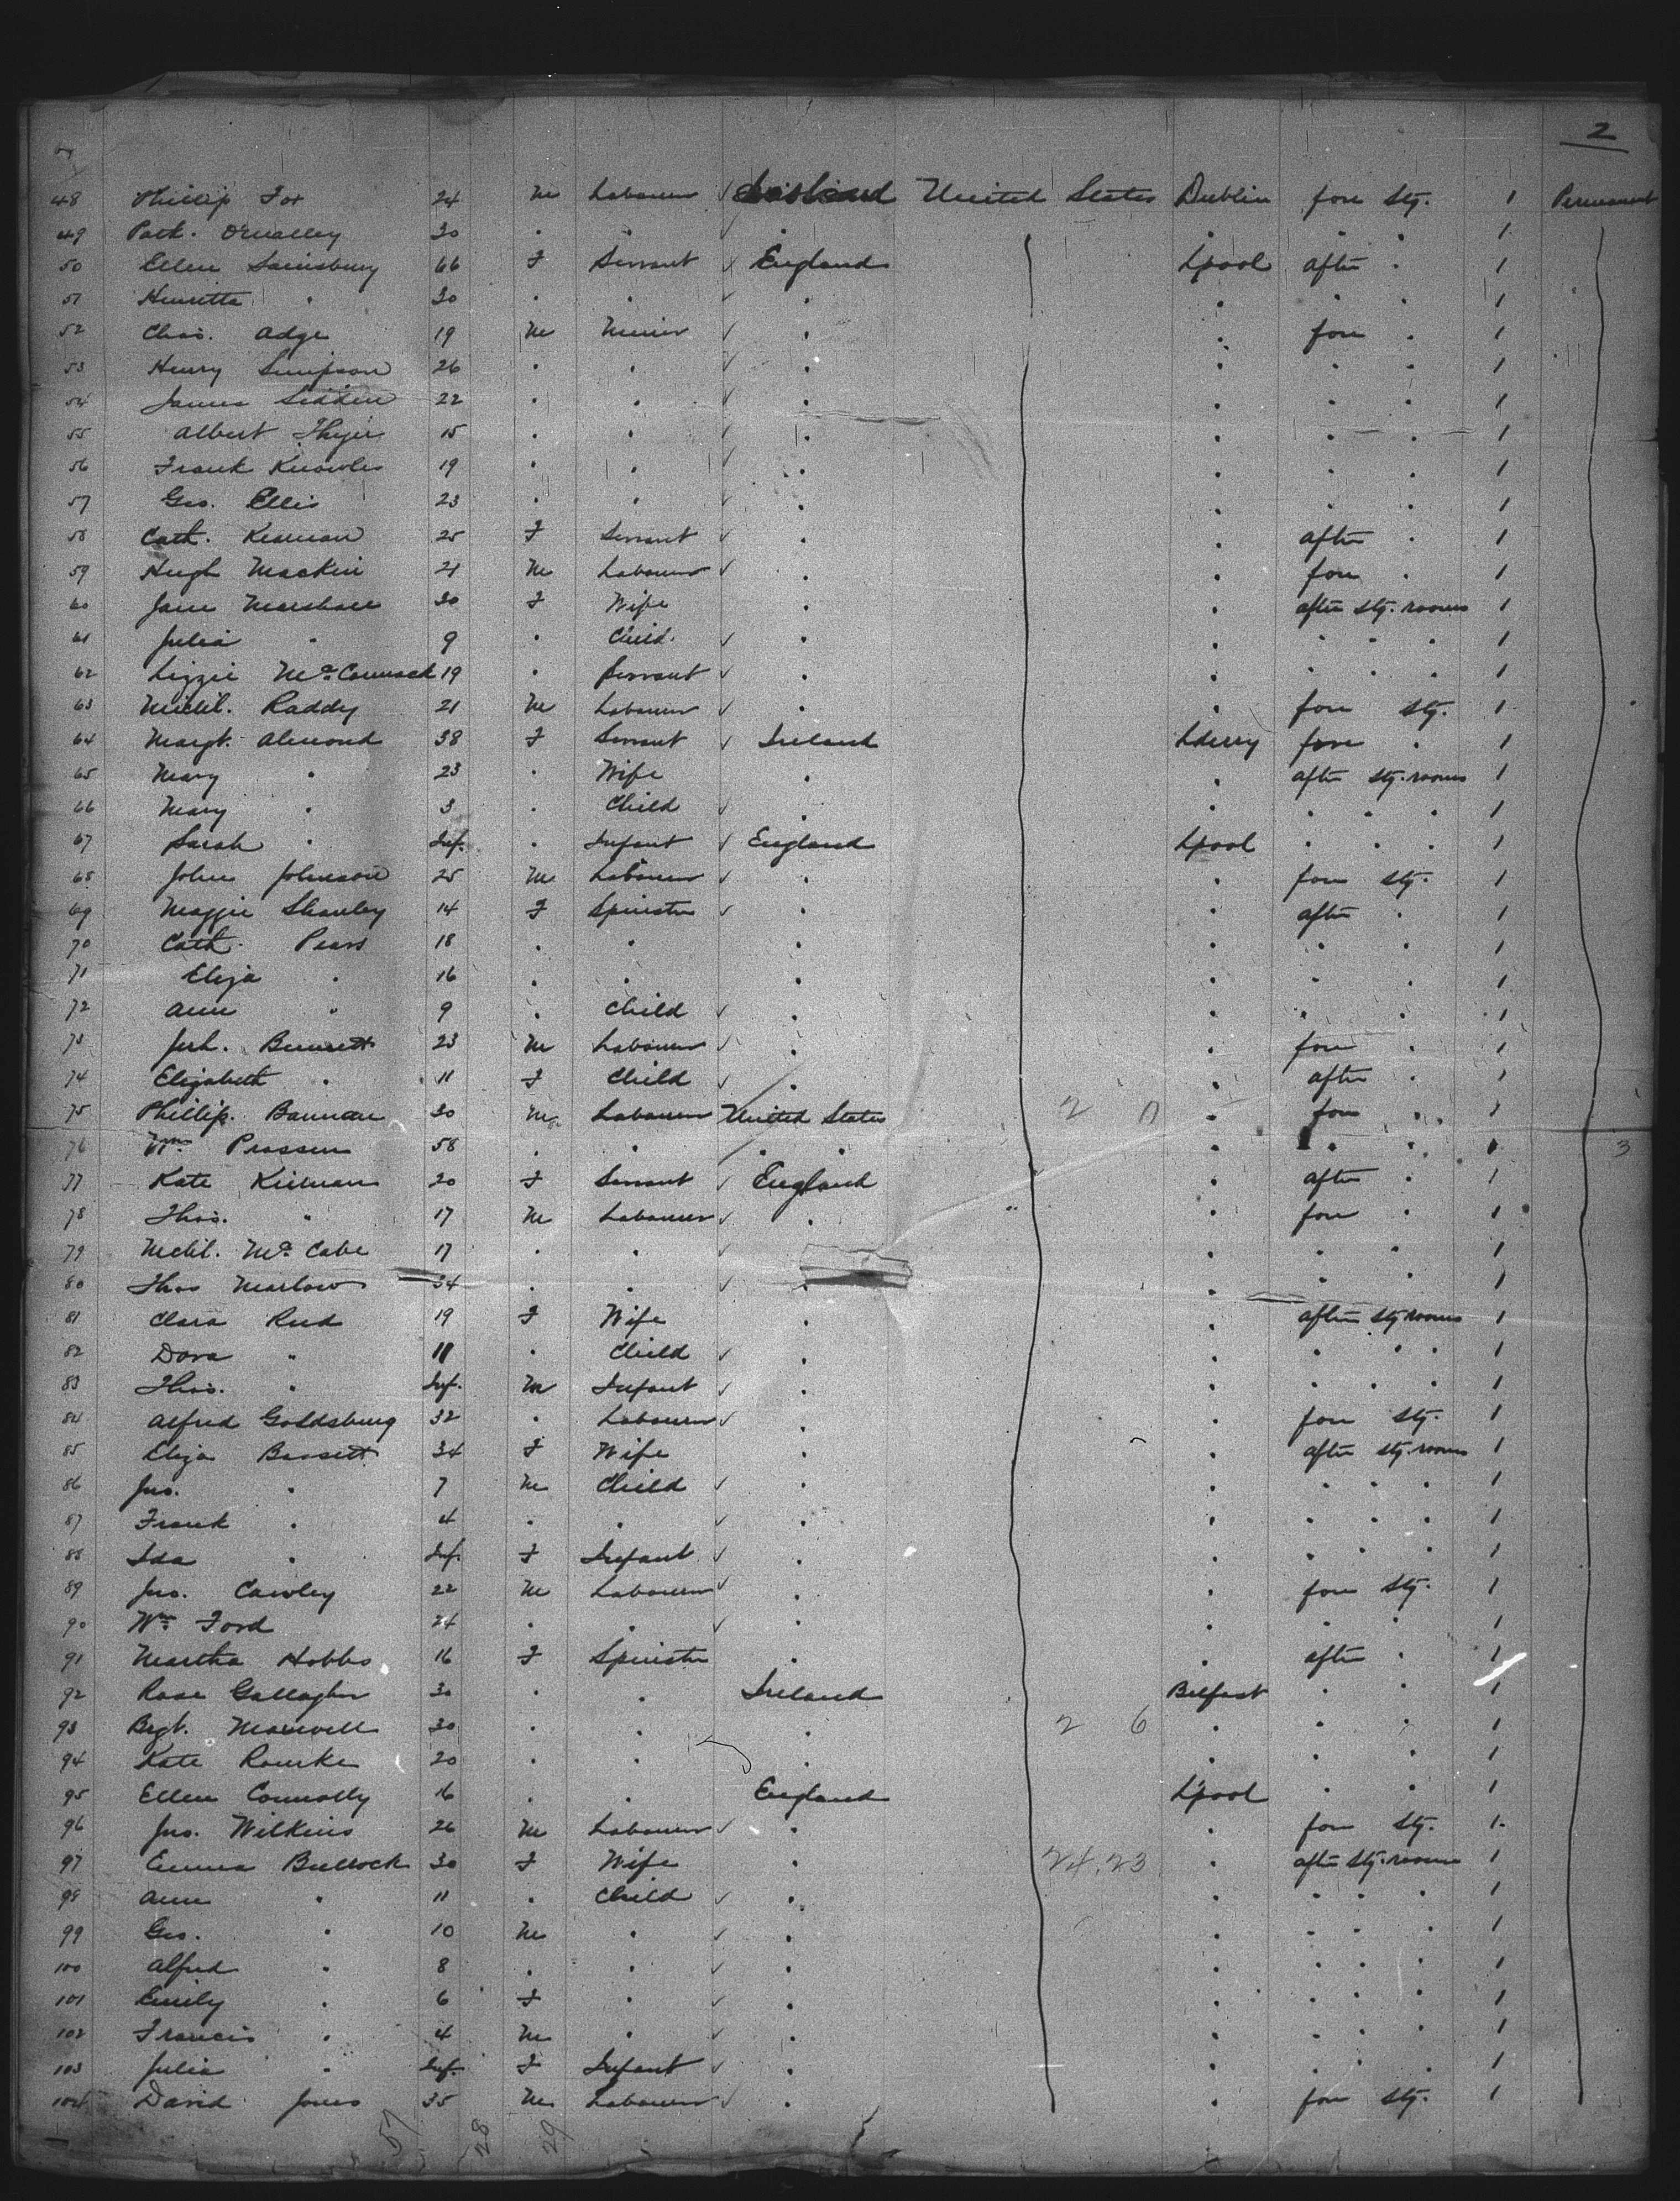 2
48 Phillip Fox 24 M Labourer ✓ United States Dublin fore Stg. 1 Permanent
49 Patk. O'Malley 30 . . ✓ . . . . 1
50 Ellen Sainsbury 66 F Servant ✓ England Lpool after . 1
51 Henrietta . 30 . . ✓ . . . . 1
52 Chas. Adge 19 M Miner ✓ . . fore . 1
53 Henry Simpson 26 . . ✓ . . . . 1
54 James Siddin 22 . . ✓ . . . . 1
55 Albert 15 . . ✓ . . . . 1
56 Frank Knowles 19 . . ✓ . . . . 1
57 Geo. Ellis 23 . . ✓ . . . . 1
58 Cath. Kearnan 25 F Servant ✓ . . after . 1
59 Hugh Mackin 21 M Labourer ✓ . . fore . 1
60 Jane Marshall 30 F Wife . . after stg. rooms 1
61 Julia " 9 . Child ✓ . . . . . 1
62 Lizzie McCormack 19 . Servant ✓ . . . . . 1
63 Michl. Raddy 21 M Labourer ✓ . . fore stg. 1
64 Margt. Almond 38 F Servant ✓ Ireland Lderry fore . 1
65 Mary " 23 . Wife . . after stg. rooms 1
66 Mary " 3 . Child ✓ . . . . . 1
67 Sarah " Inf. . Infant ✓ England Lpool . . . 1
68 John Johnson 25 M Labourer ✓ . . fore stg. 1
69 Maggie Shanley 14 F Spinster ✓ . . after . 1
70 Cath. Pears 18 . . . . . . 1
71 Eliza . 16 . . . . . . 1
72 Ann " 9 . Child ✓ . . . . 1
73 Jerh. Bennett 23 M Labourer ✓ . . fore . 1
74 Elizabeth . 11 F Child ✓ . . after . 1
75 Phillip. Bannan 30 M Labourer United States 2 0 . fore . 1
76 Wm. 58 . . . . . . 1 3
77 Kate Kiernan 20 F Servant ✓ England . after . 1
78 Thos. " 17 M Labourer ✓ . . fore . 1
79 Mchl. McCabe 17 . . ✓ . . . . 1
80 Thos Marlow 34 . . ✓ . . . . 1
81 Clara Reed 19 F Wife . . after stg rooms 1
82 Dora " 11 . Child ✓ . . . . . 1
83 Thos. " Inf. M Infant ✓ . . . . . 1
84 Alfred Goldsburg 32 . Labourer ✓ . . fore stg. 1
85 Eliza Bassett 34 F Wife . . after stg. rooms 1
86 Jno. " 7 M Child ✓ . . . . . 1
87 Frank . 4 . . ✓ . . . . . 1
88 Ida " Inf. F Infant ✓ . . . . . 1
89 Jno. Cawley 22 M Labourer ✓ . . fore stg. 1
90 Wm. Ford 24 . . ✓ . . . . 1
91 Martha Hobbs 16 F Spinster . . after . 1
92 Rose Gallagher 30 . . Ireland Belfast . . 1
93 Brgt. Maxwell 30 . . . 2 6 . . . 1
94 Kate Rourke 20 . . . . . . 1
95 Ellen Connolly 16 . . England L'pool . . 1
96 Jno. Wilkins 26 M Labourer ✓ . . fore stg. 1
97 Emma Bullock 30 F Wife . 24.23 . after stg. rooms 1
98 Ann " 11 . Child ✓ . . . . . 1
99 Geo. " 10 M . ✓ . . . . . 1
100 Alfred " 8 . . ✓ . . . . . 1
101 Emily . 6 F . ✓ . . . . . 1
102 Francis . 4 M . ✓ . . . . . 1
103 Julia " Inf. F Infant ✓ . . . . . 1
104 David Jones 35 M Labourer ✓ . . fore stg. 1
57 28 29